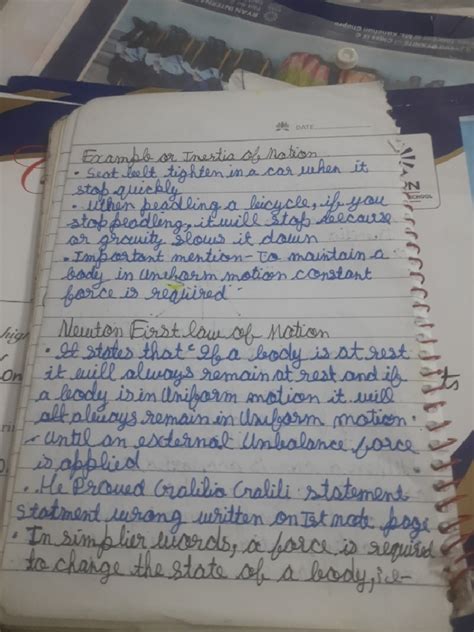 RYAN INTERN
DATE
Example or Inertia of Motion
• Seat belt tighten in a car when it
stop quickly
• When peadling a bicycle, if you
stop peadling, it will stop because
or gravity slows it down
• Important mention - To maintain a
body in uniform motion constant
force is required
Newton First law of Motion
• It states that "If a body is at rest
it will always remain at rest and if
a body is in Uniform motion it will
alt always remain in Uniform motion
until an external Unbalance force
is applied
• He Proved Gralilio Gralili statement
statment wrong written on 1st note page
• In simplier words, a force is required
to change the state of a body, i.e-
SCHOOL
ts